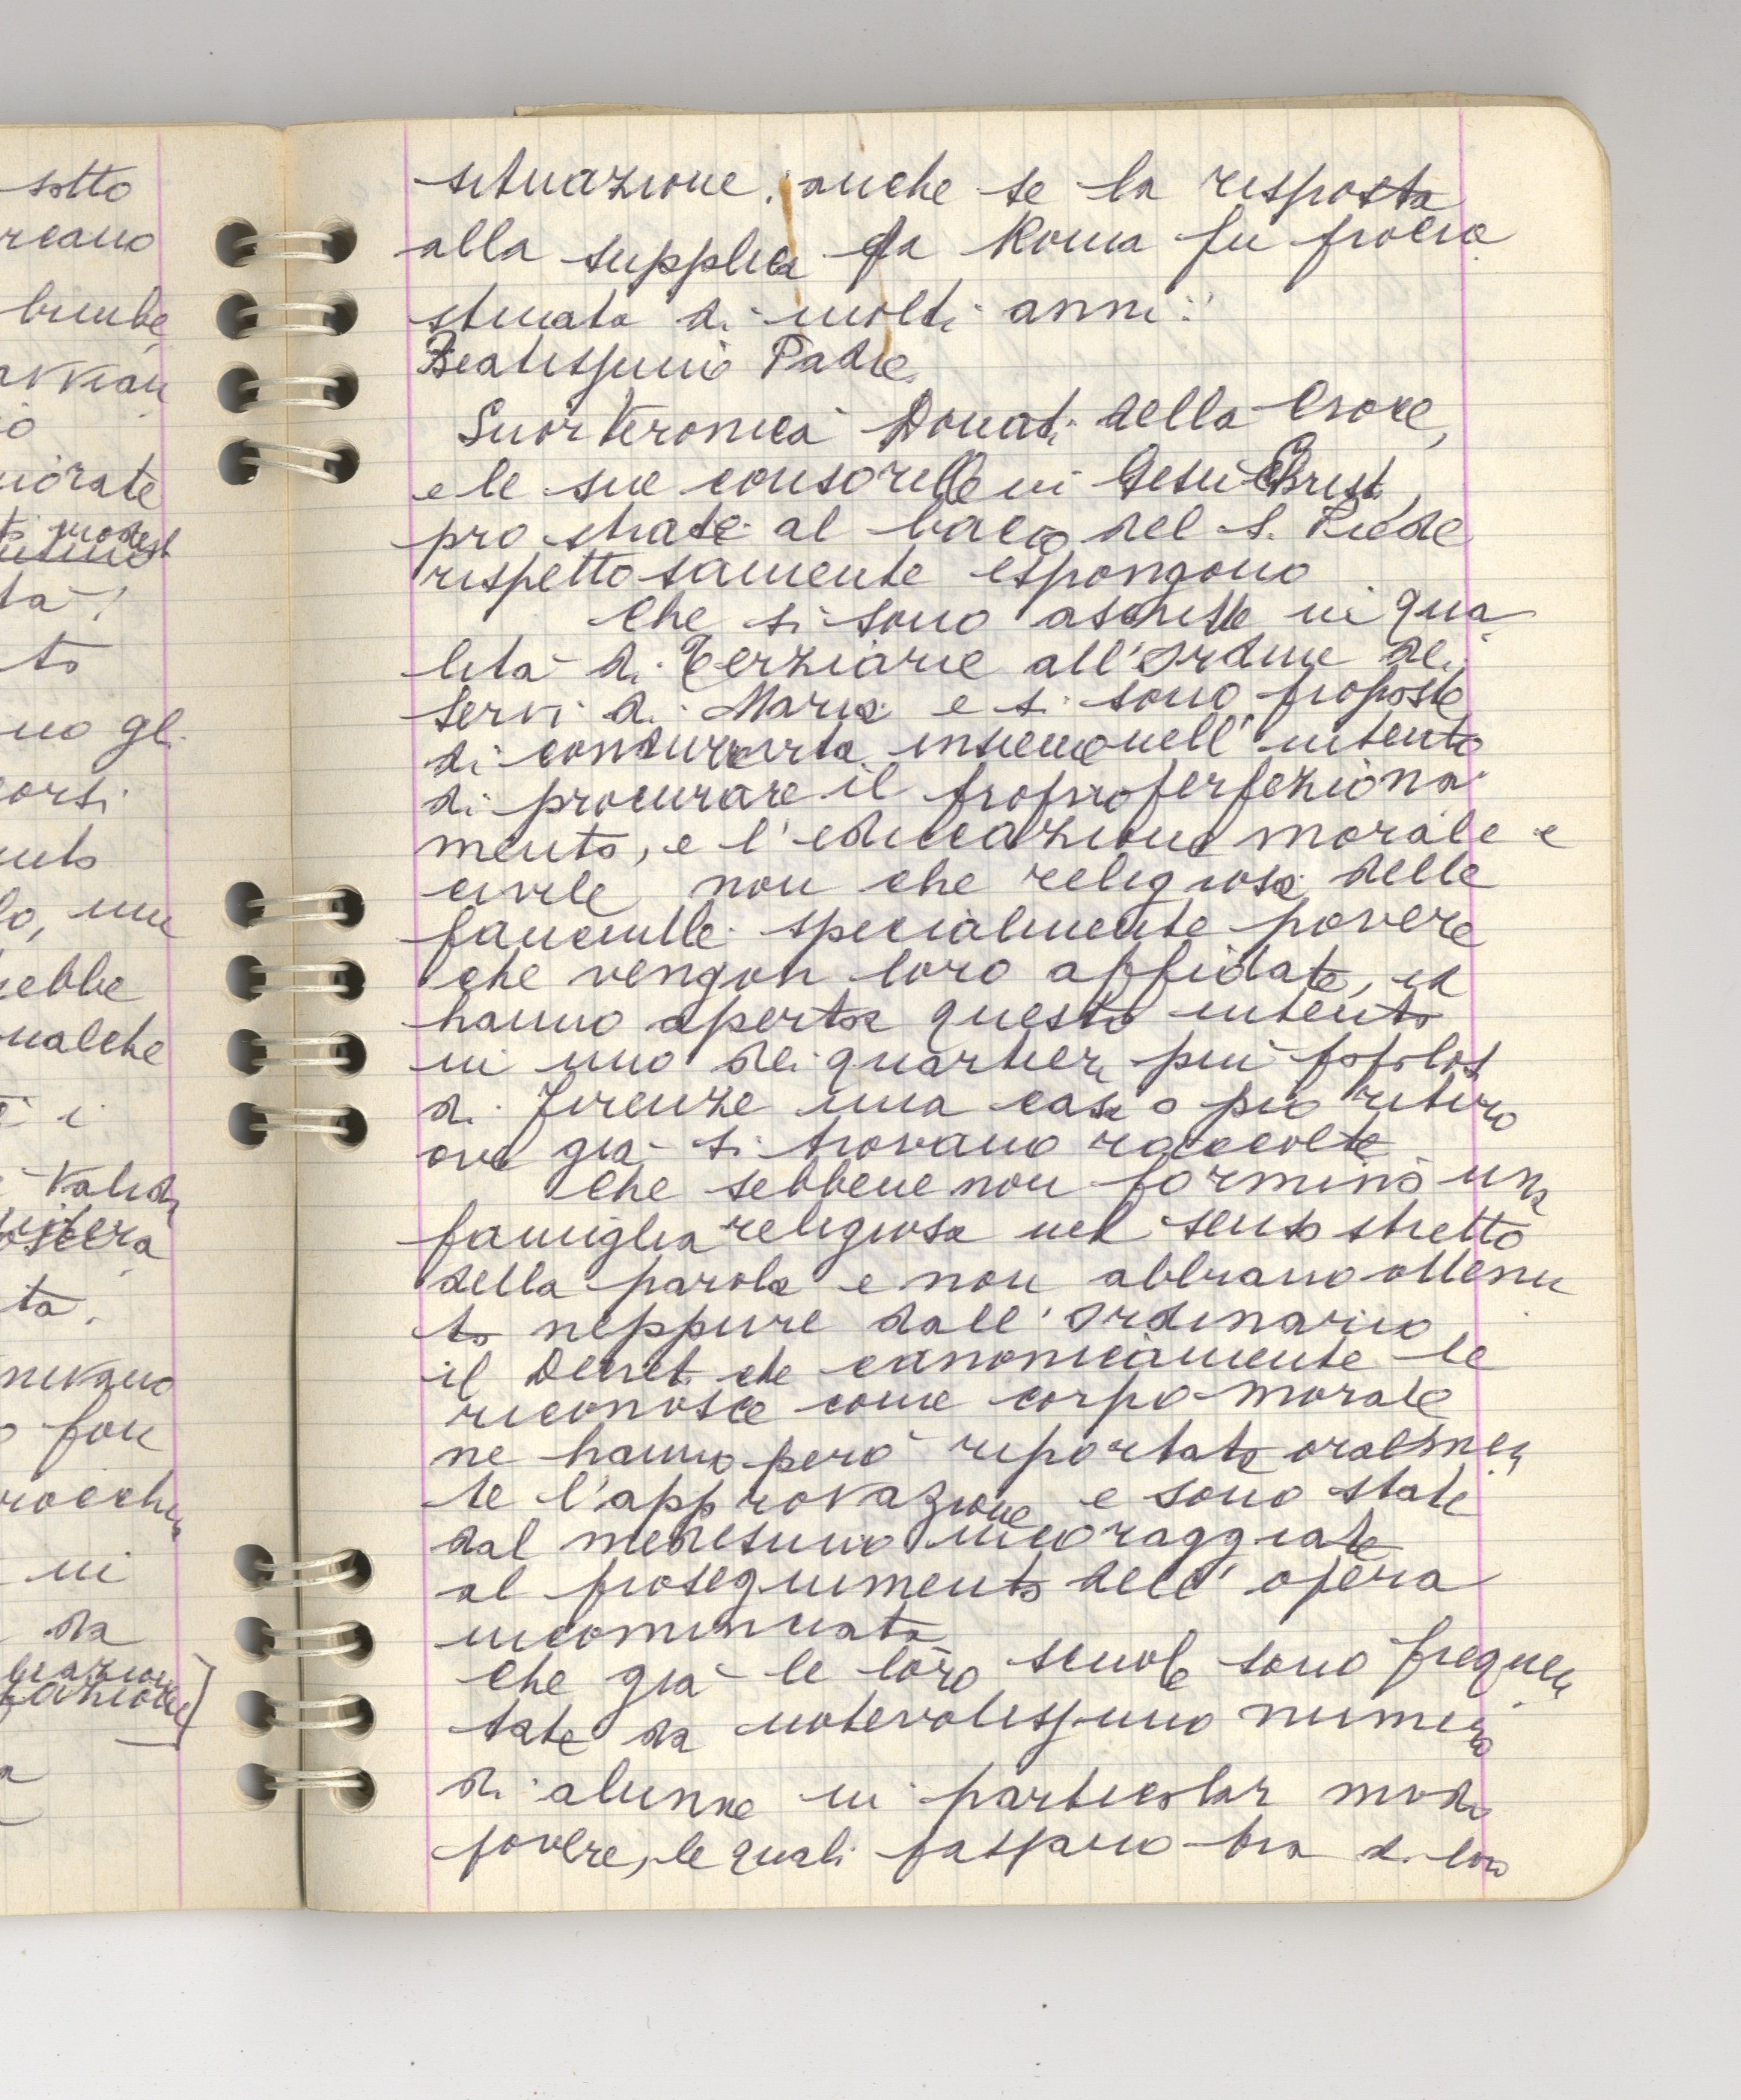 sotto
bimbe
morate
modest
ta!
to
no gli
corsi
ebbe
qualche
ta.
fon
in
da
situazione. anche se la risposta
alla supplica da Roma fu procra
stinata di molti anni:
Beatissimo Padre
Suor Veronica Donati della Croce,
e le sue consorelle in Gesù Crist,
prostrate al bacio del S. Piede
rispettosamente espongono
Che si sono ascritte in qua
lità di Terziarie all'Ordine dei
Servi di Maria e si sono proposte
di condurre vita insieme nell'intento
di procurare il proprio perfeziona
mento, e l'educazione morale e
civile non che religiosa delle
fanciulle specialmente povere
che vengon loro affidate, ed
hanno aperto a questo intento
in uno dei quartieri più popolosi
di Firenze una casa o pio ritiro
ove già si trovano raccolte
Che sebbene non formino una
famiglia religiosa nel senso stretto
della parola e non abbiano ottenu
to neppure dall'Ordinario
il Decret. che canonicamente le
riconosce come corpo morale
ne hanno però riportata oralmen
te l'approvazione e sono state
dal medesimo incoraggiate
al proseguimento dell'opera
incominciata
Che già le loro scuole sono frequen
tate da notevolissimo numero
di alunne in particolar modo
povere, le quali passano tra di loro